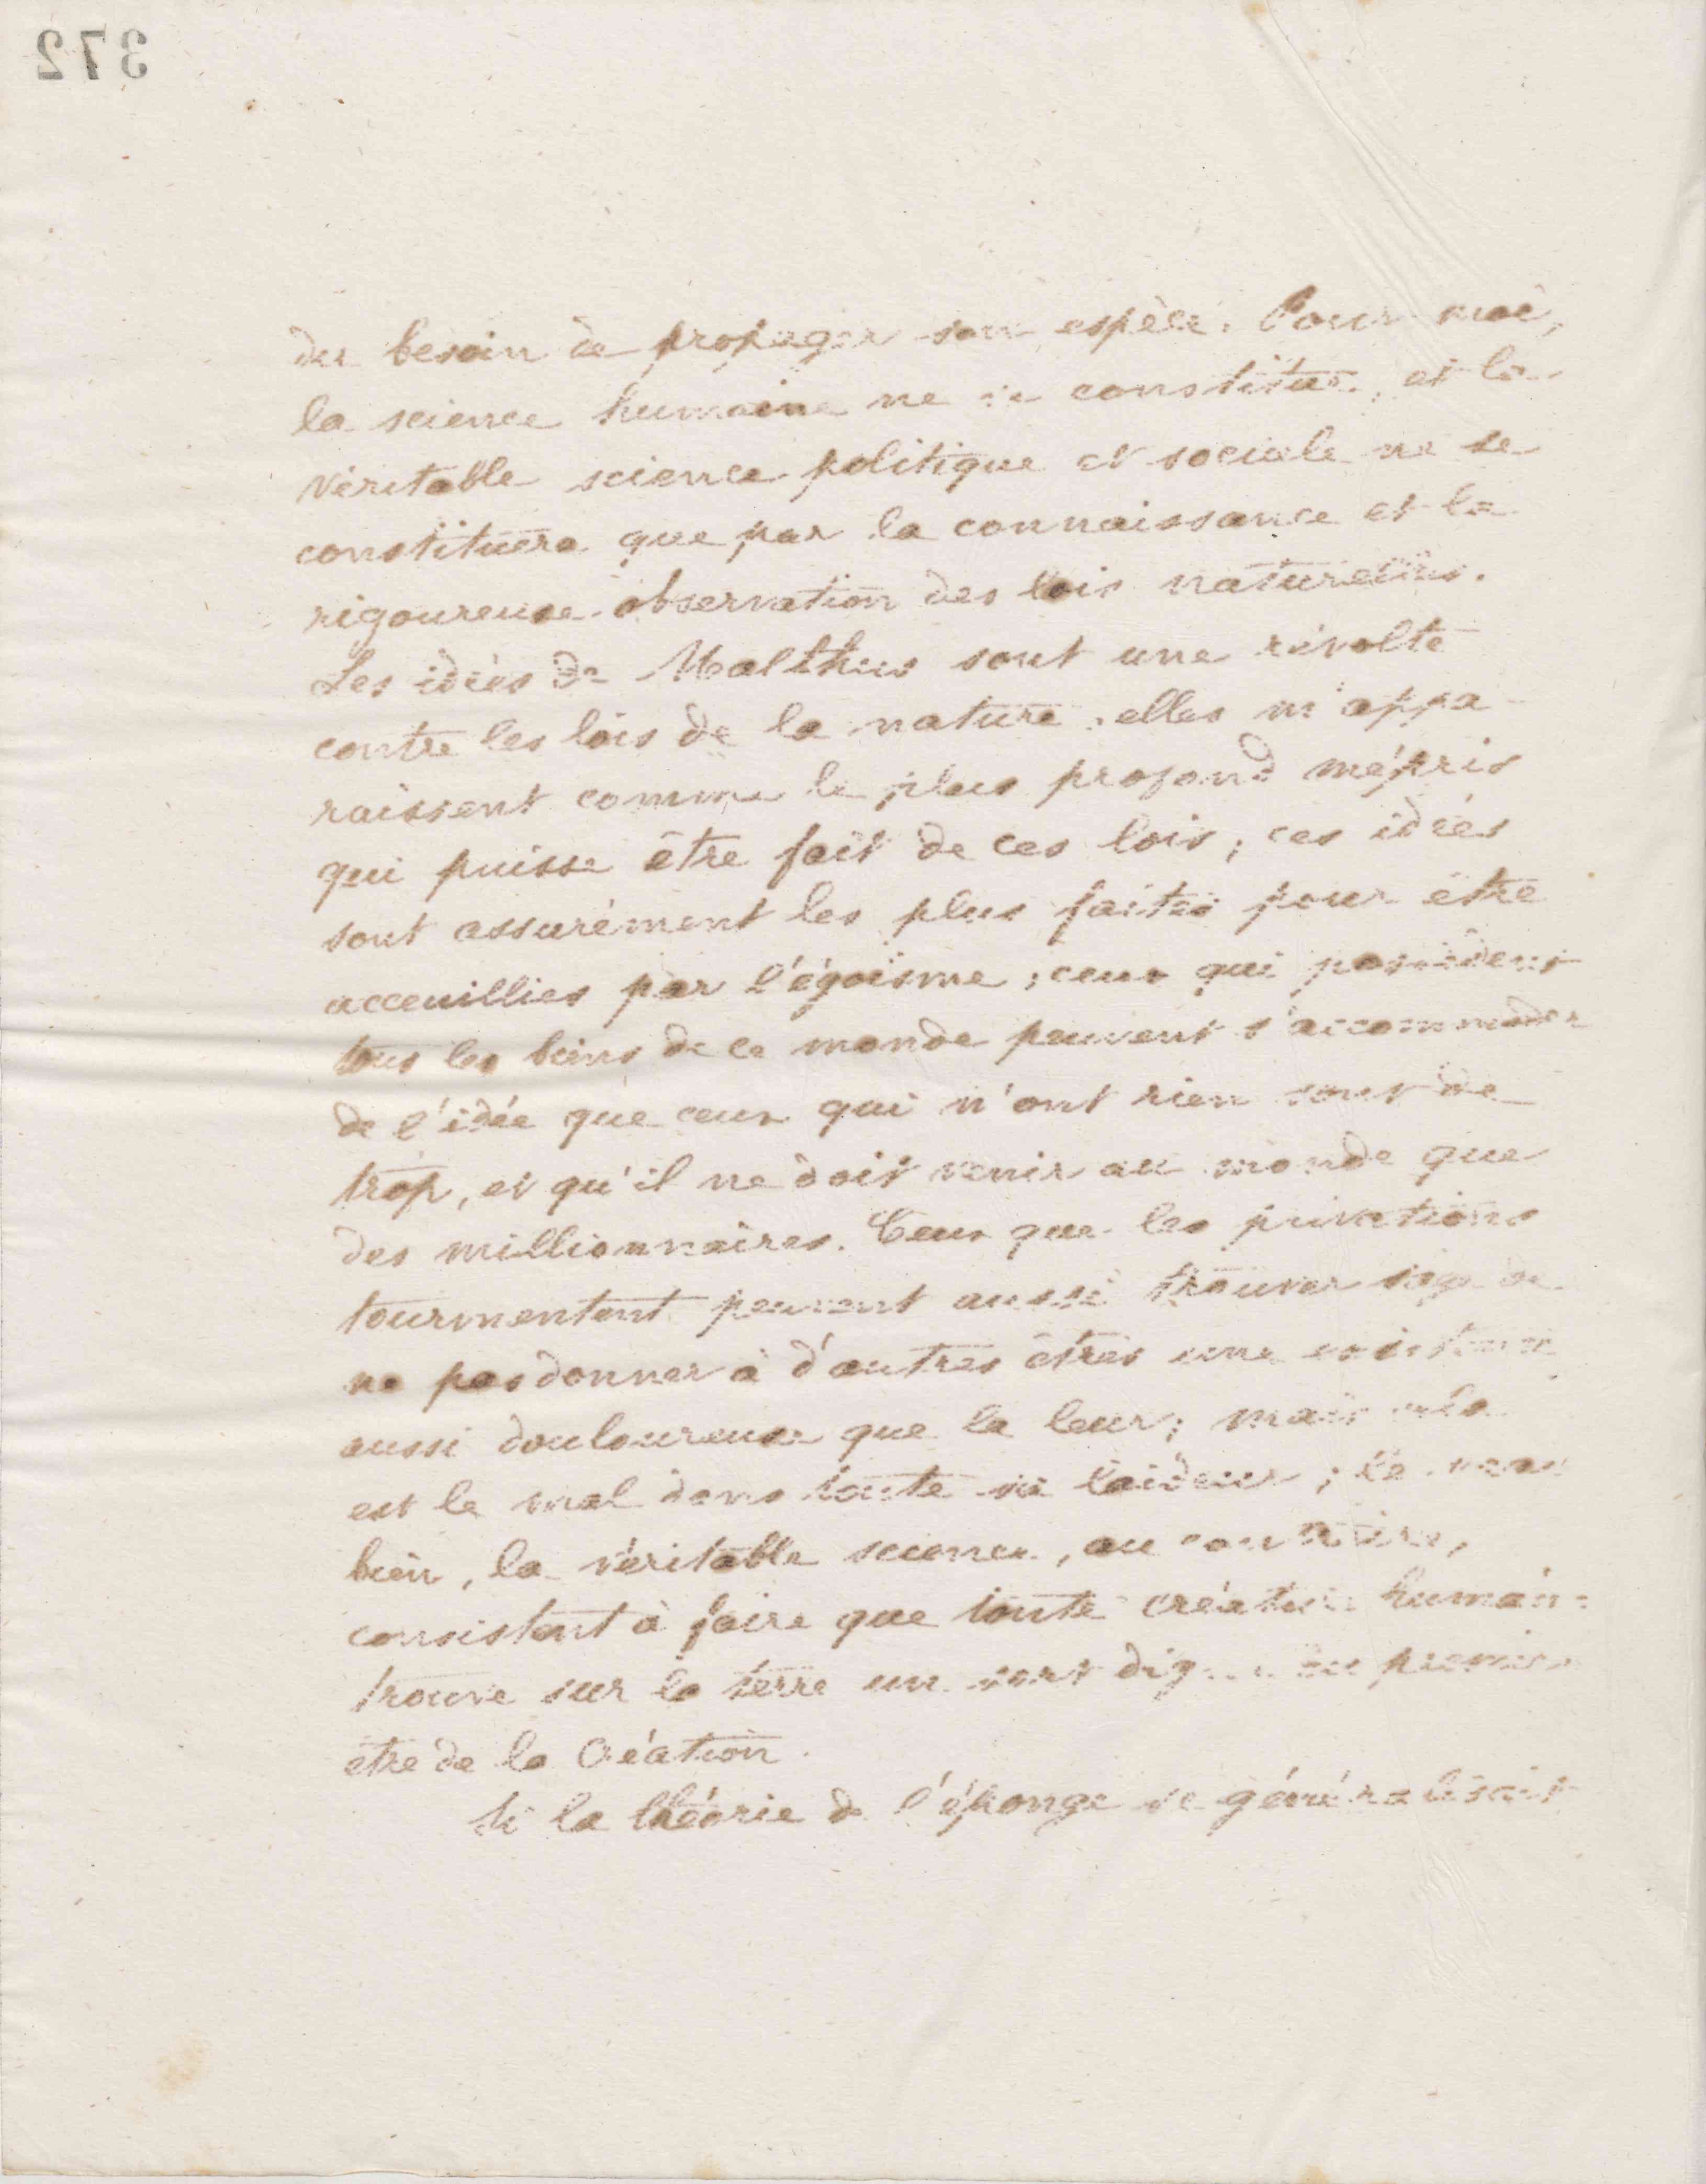 372
du besoin de propager son espèce. Pour moi,
la science humaine ne se constitue, et la
véritable science politique et sociale ne se
constituera que par la connaissance et la
rigoureuse observation des lois naturelles.
Les idées de Malthus sont une révolte
contre les lois de la nature ; elles m'appa-
raissent comme le plus profond mépris
qui puisse être fait de ces lois ; ces idées
sont assurément les plus faites pour être
acceuillies par l'égoïsme ; ceux qui possèdent
tous les biens de ce monde peuvent s'accommoder
de l'idée que ceux qui n'ont rien sont de
trop, et qu'il ne doit venir au monde que
des millionnaires. Ceux que les privations
tourmentent peuvent aussi trouver sage de
ne pas donner à d'autres êtres une existence
aussi douloureuse que la leur ; mais cela
est le mal dans toute sa laideur ; le vrai
bien, la véritable science, au contraire,
consistent à faire que toute créature humaine
trouve sur la terre un sort digne du premier
être de la Création.
Si la théorie de l'éponge se généralisait